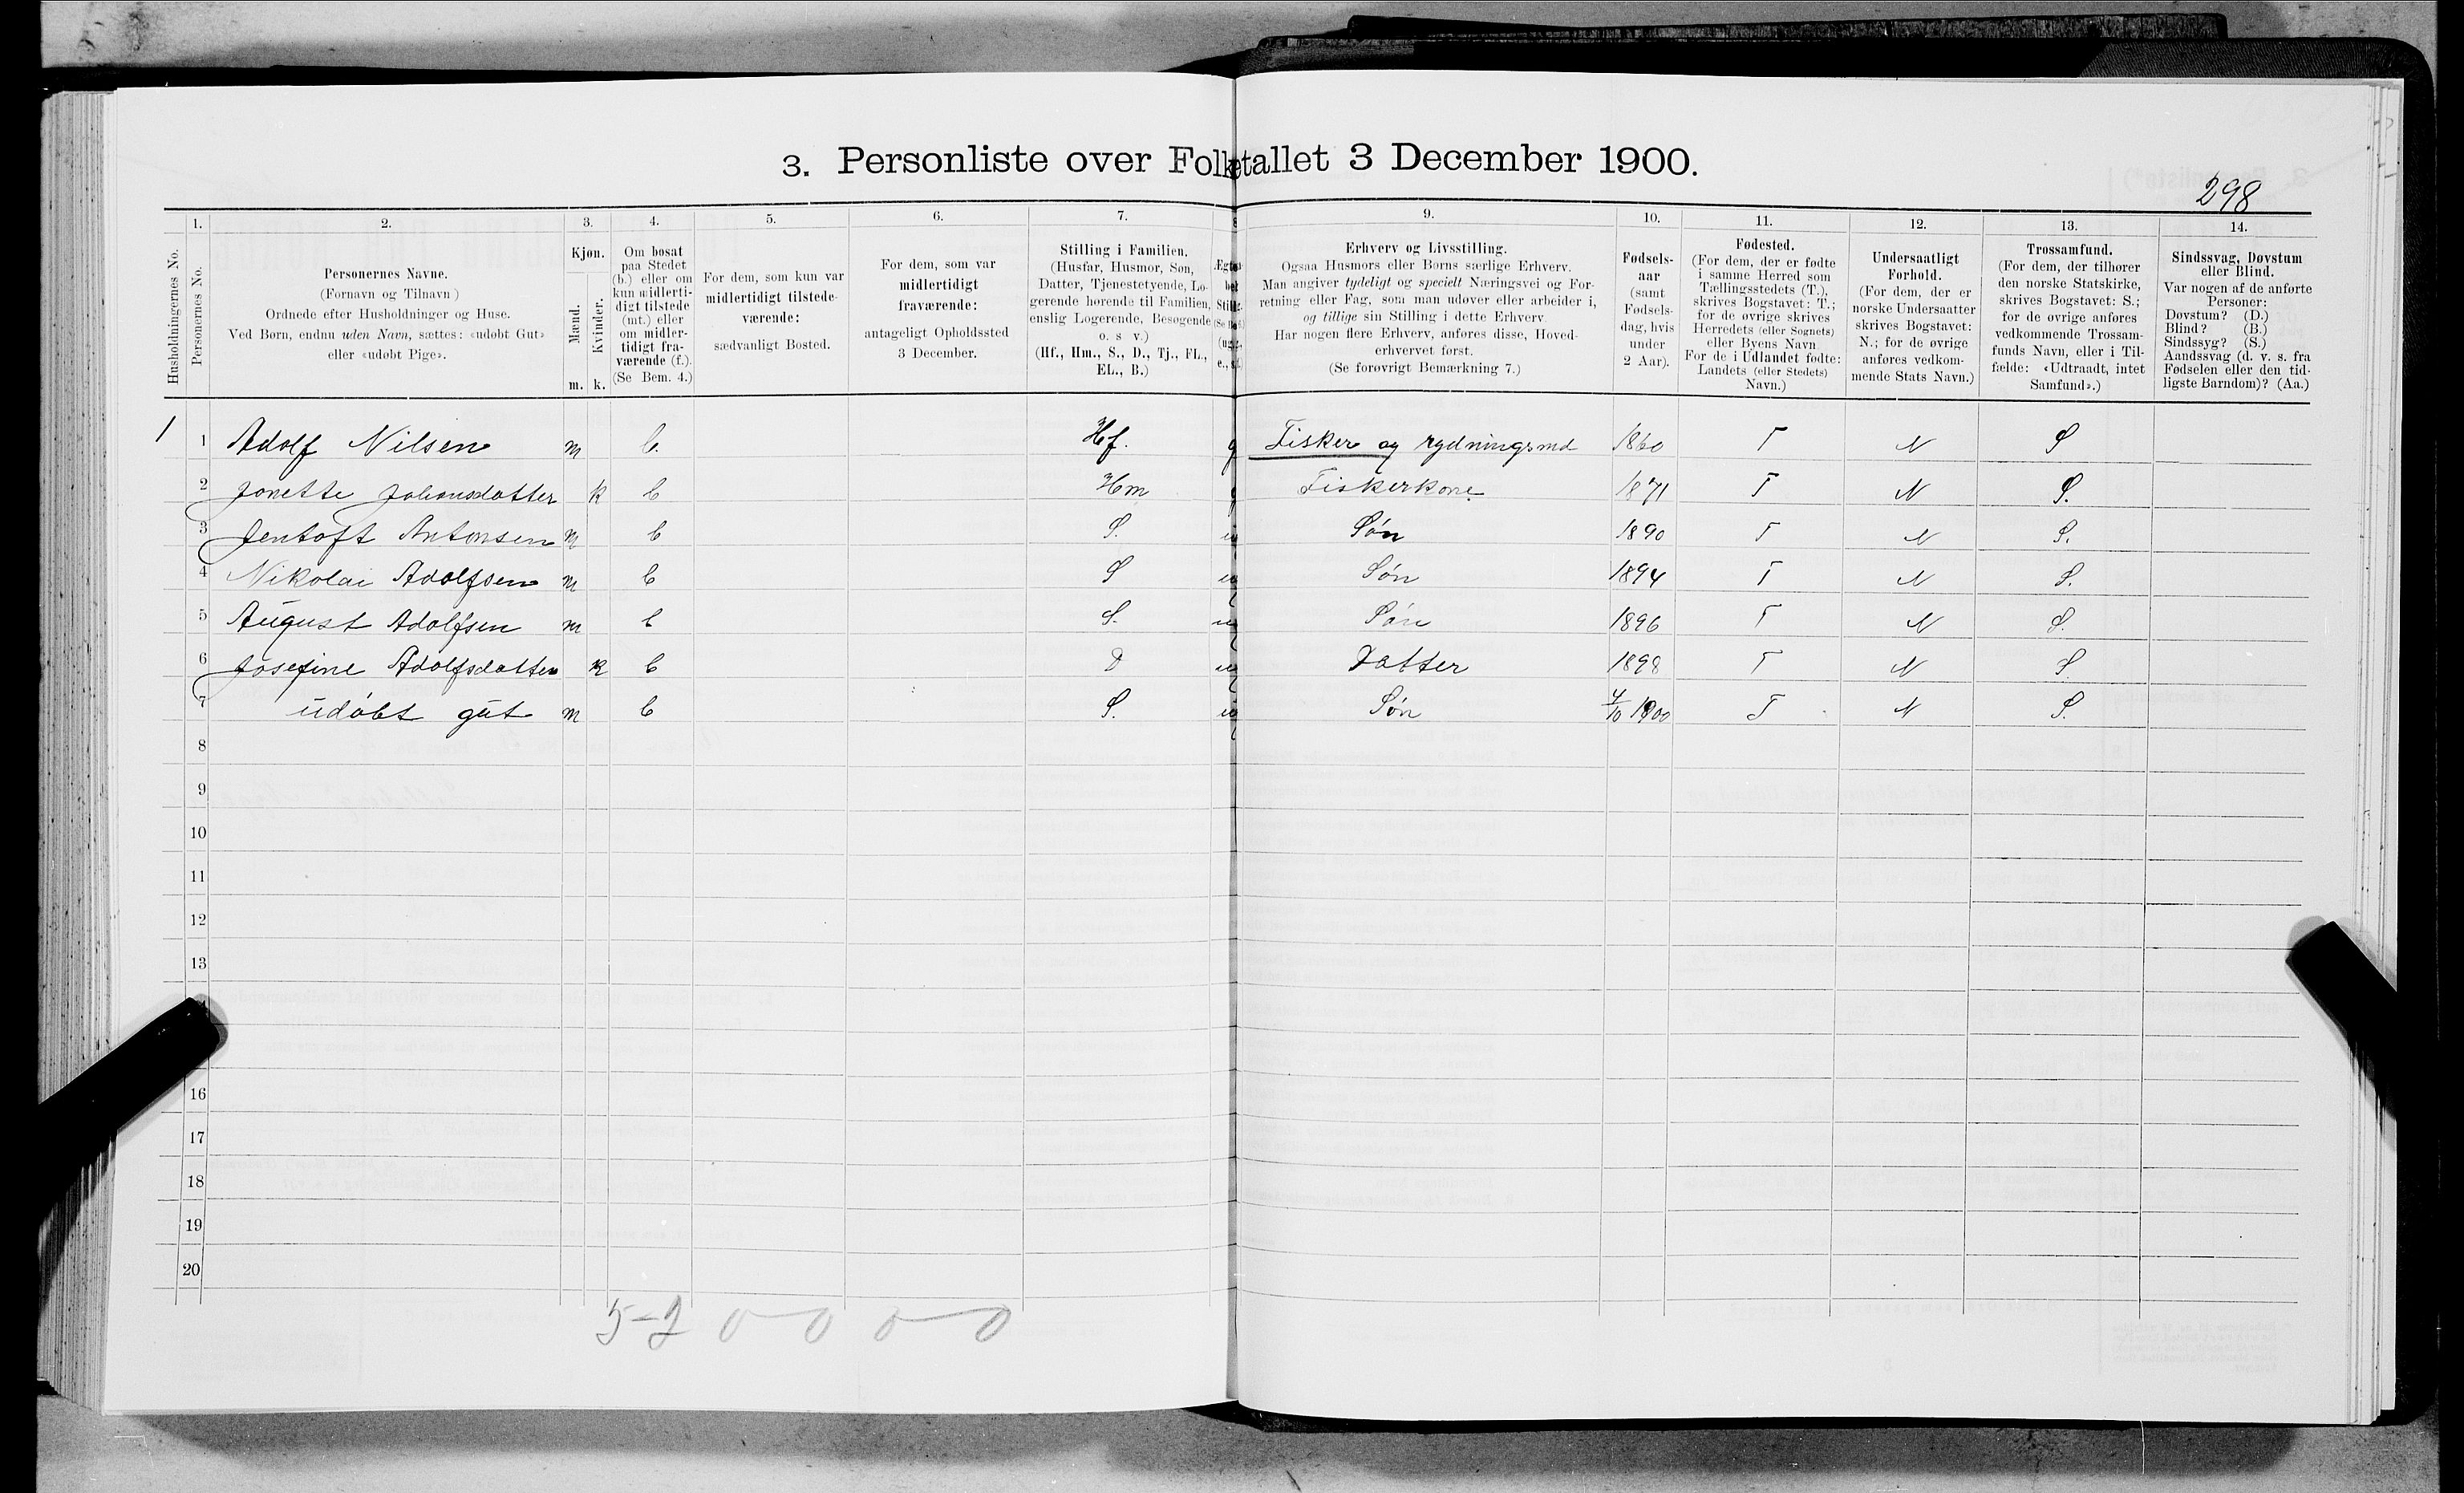 3. Personliste over Folketallet 3 December 1900.
298
Husholdningernes No.
1.
Personernes No.
2.
Personernes Navne.
(Fornavn og Tilnavn)
Ordnede efter Husholdninger og Huse.
Ved Børn, endnu uden Navn, sættes: «udøbt Gut»
eller «udøbt Pige».
3.
Kjøn.
Mænd.
Kvinder.
m. k.
4.
Om bosat
paa Stedet
(b.) eller om
kun midlerti-
digt tilstede
(mt.) eller
om midler-
tidigt fra-
værende (f.).
(Se Bem. 4.)
5.
For dem, som kun var
midlertidigt tilstede-
værende:
sædvanligt Bosted.
6.
For dem, som var
midlertidigt
fraværende:
antageligt Opholdssted
3 December.
7.
Stilling i Familien.
(Husfar, Husmor, Søn,
Datter, Tjenestetyende, Lo-
gerende hørende til Familien,
enslig Logerende, Besøgende
o. s v.)
(Hf., Hm., S., D., Tj., FL.,
EL., B.)
9.
Erhverv og Livsstilling.
Ogsaa Husmors eller Børns særlige Erhverv.
Man angiver tydeligt og specielt Næringsvei og For-
retning eller Fag, som man udøver eller arbeider i,
og tillige sin Stilling i dette Erhverv.
Har nogen flere Erhverv, anføres disse, Hoved-
erhvervet først.
(Se forøvrigt Bemærkning 7.)
10.
Fødsels-
aar
(samt
Fødsels-
dag, hvis
under
2 Aar).
11.
Fødested.
(For dem, der er fødte
i samme Herred som
Tællingsstedets (T.),
skrives Bogstavet: T.;
for de øvrige skrives
Herredets (eller Sognets)
eller Byens Navn
For de i Udlandet fødte:
Landets (eller Stedets)
Navn.)
12.
Undersaatligt
Forhold.
(For dem, der er
norske Undersaatter
skrives Bogstavet:
N.; for de øvrige
anføres vedkom-
mende Stats Navn.)
13.
Trossamfund.
(For dem, der tilhører
den norske Statskirke,
skrives Bogstavet: S.;
for de øvrige anføres
vedkommende Trossam-
funds Navn, eller i Til-
fælde: «Udtraadt, intet
Samfund».)
14.
Sindssvag, Døvstum
eller Blind.
Var nogen af de anførte
Personer:
Døvstum? (D.)
Blind? (B.)
Sindssyg? (S.)
Aandssvag (d. v. s. fra
Fødselen eller den tid-
ligste Barndom)? (Aa.)
1 1 Adolf Nilsen m b. Hf. g Fisker og rydningsmd 1860 T N S
2 Jonette Johansdatter k b Hm g Fiskerkone 1871 T N S.
3 Jentoft Antonsen m b S. Søn 1890 T N S.
4 Nikolai Adolfsen m b S Søn 1894 T N S.
5 August Adolfsen m b S. Søn 1896 T N S.
6 Josefine Adolfsdatter k b D Datter 1898 T N S.
7 udøbt gut m b S. Søn 4/10 1900 T N S.
8
9
10
11
12
13
16
17
18
19
20
5-2 0-0 0-0